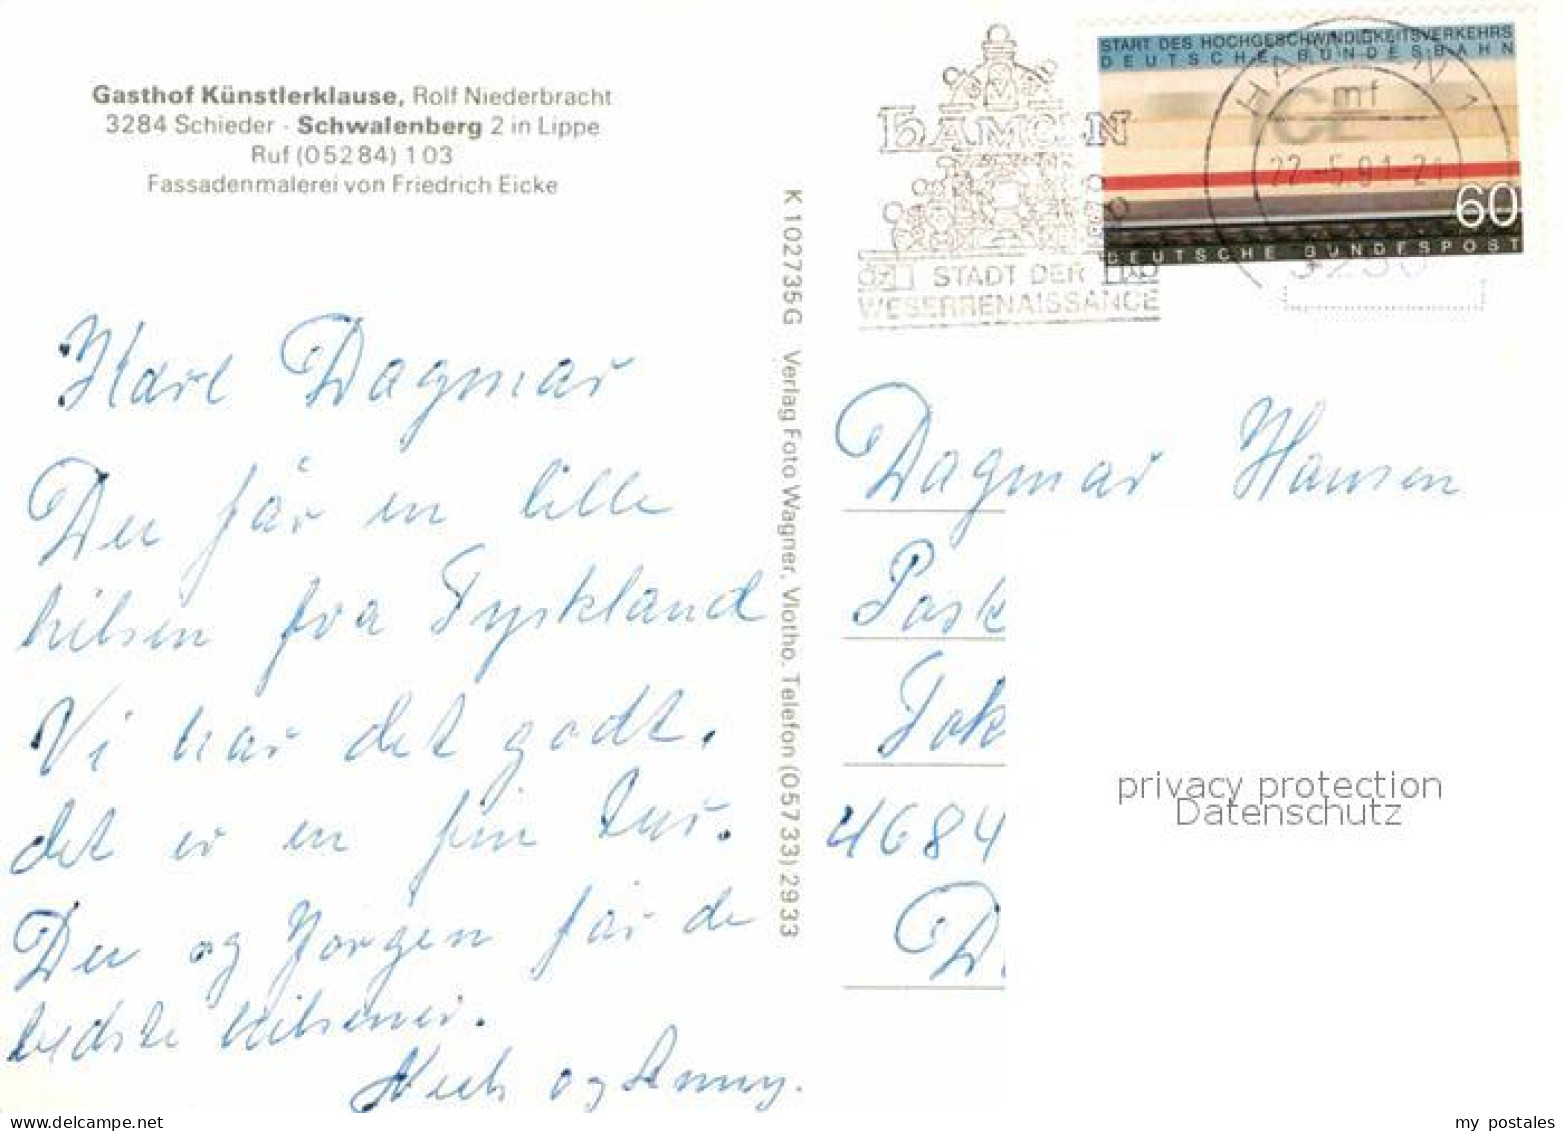 Gasthof Künstlerklause, Rolf Niederbracht
3284 Schieder - Schwalenberg 2 in Lippe
Ruf (05284) 103
Fassadenmalerei von Friedrich Eicke
Kære Dagmar
Du får en lille
hilsen fra Tyskland
Vi har det godt.
det er en fin tur.
Du og Jørgen får de
bedste hilsener.
og Anny.
K 102735G Verlag Foto Wagner, Vlotho. Telefon (05733) 2933
HAMELN
STADT DER
WESERRENAISSANCE
START DES HOCHGESCHWINDIGKEITSVERKEHRS
DEUTSCHE BUNDESBAHN
ICE
60
DEUTSCHE BUNDESPOST
HAMELN 1
mf
22.-5.91-21
Dagmar Hansen
4684
privacy protection
Datenschutz
my postales